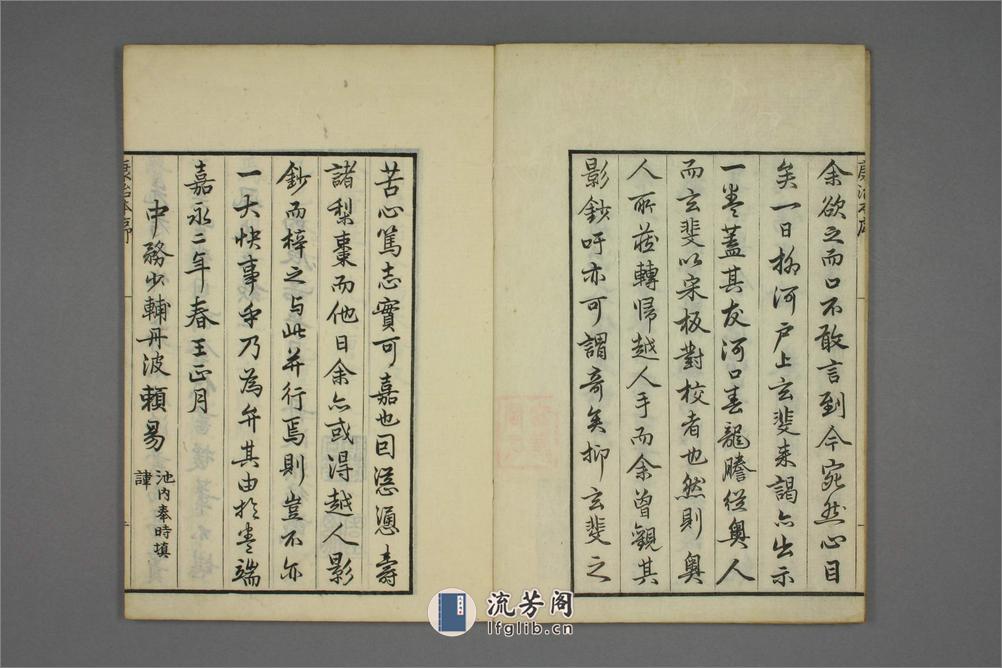 余欲之而口不敢言到今宛然心目
矣一日柳河戸上玄斐来謁亦出示
一巻蓋其友河口春龍謄從奧人
而玄斐以宋板對校者也然則奧
人所蔵轉帰越人手而余曽觀其
影鈔吁亦可謂奇矣抑玄斐之
苦心篤志實可嘉也因慫慂壽
諸梨棗而他日余亦或得越人影
鈔而梓之与此并行焉則豈不亦
一大快事乎乃為弁其由於巻端
嘉永二年春王正月
中務少輔丹波頼易
池内奉時填
諱
康治本序
二
流芳阁
lfglib.cn